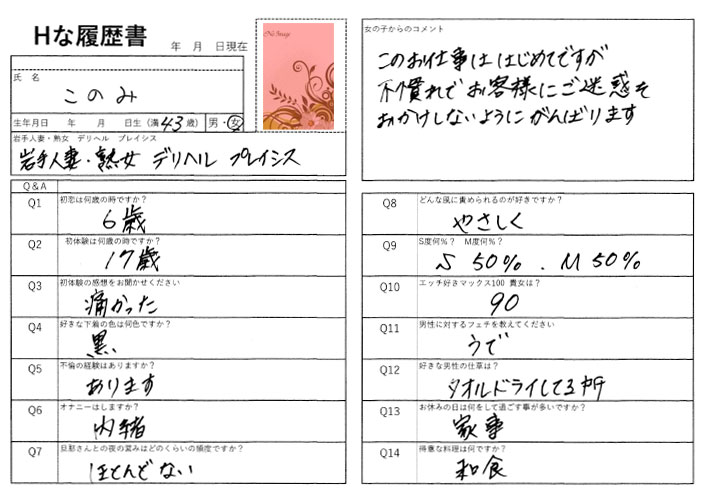 Hな履歴書
年 月 日現在
No Image
氏 名
このみ
生年月日 年 月 日生（満43歳） 男・女
岩手人妻・熟女 デリヘル プレイシス
岩手人妻・熟女 デリヘル プレイシス
Q&A
Q1 初恋は何歳の時ですか?
6歳
Q2 初体験は何歳の時ですか?
17歳
Q3 初体験の感想をお聞かせください
痛かった
Q4 好きな下着の色は何色ですか?
黒
Q5 不倫の経験はありますか?
あります
Q6 オナニーはしますか?
内緒
Q7 旦那さんとの夜の営みはどのくらいの頻度ですか?
ほとんどない
女の子からのコメント
このお仕事は はじめてですが
不慣れでお客様にご迷惑を
おかけしないようにがんばります
Q8 どんな風に責められるのが好きですか?
やさしく
Q9 S度何%? M度何%?
S 50%.M 50%
Q10 エッチ好きマックス100 貴女は?
90
Q11 男性に対するフェチを教えてください
うで
Q12 好きな男性の仕草は?
タオルドライしてる時
Q13 お休みの日は何をして過ごす事が多いですか?
家事
Q14 得意な料理は何ですか?
和食